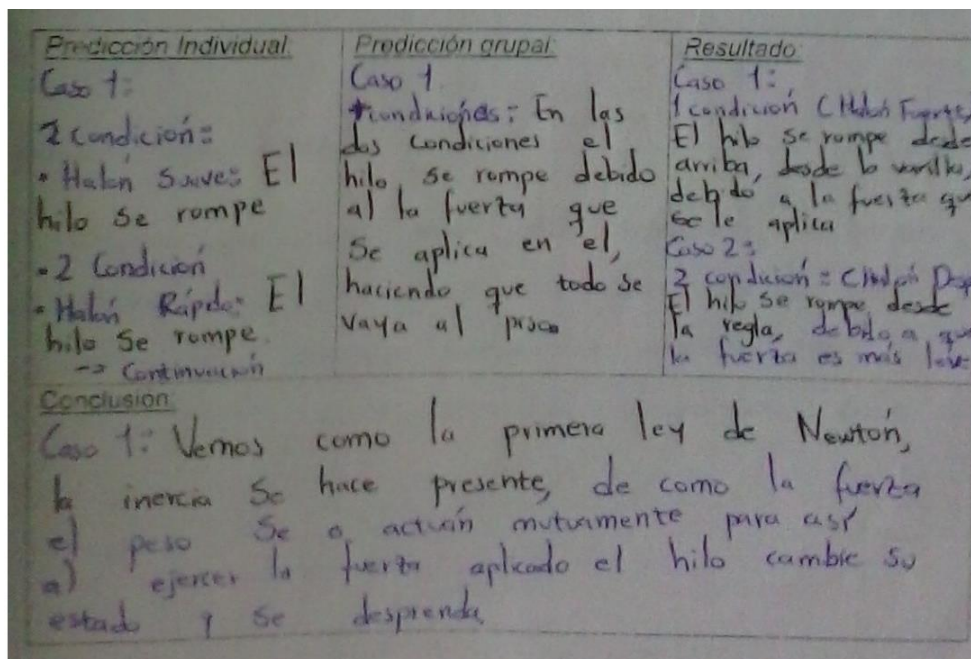 Predicción Individual:
Caso 1:
2 condición:
• Halón Suave: El
hilo se rompe
• 2 Condición
• Halón Rápido: El
hilo se rompe.
-> Continuación
Predicción grupal:
Caso 1
condiciones: En las
dos condiciones el
hilo, se rompe debido
al la fuerza que
se aplica en el,
haciendo que todo se
vaya al piso
Resultado:
Caso 1:
1 condicion (Halón Fuerte,
El hilo se rompe desde
arriba, desde la varilla,
debido a la fuerza
se le aplica
Caso 2:
2 condición:
El hilo se rompe desde
la regla, debido a
la fuerza es más leve
Conclusion:
Caso 1: Vemos como la primera ley de Newtón,
la inercia se hace presente, de como la fuerza
el peso se actuán mutuamente para así
al ejercer la fuerza aplicado el hilo cambie su
estado y se desprenda